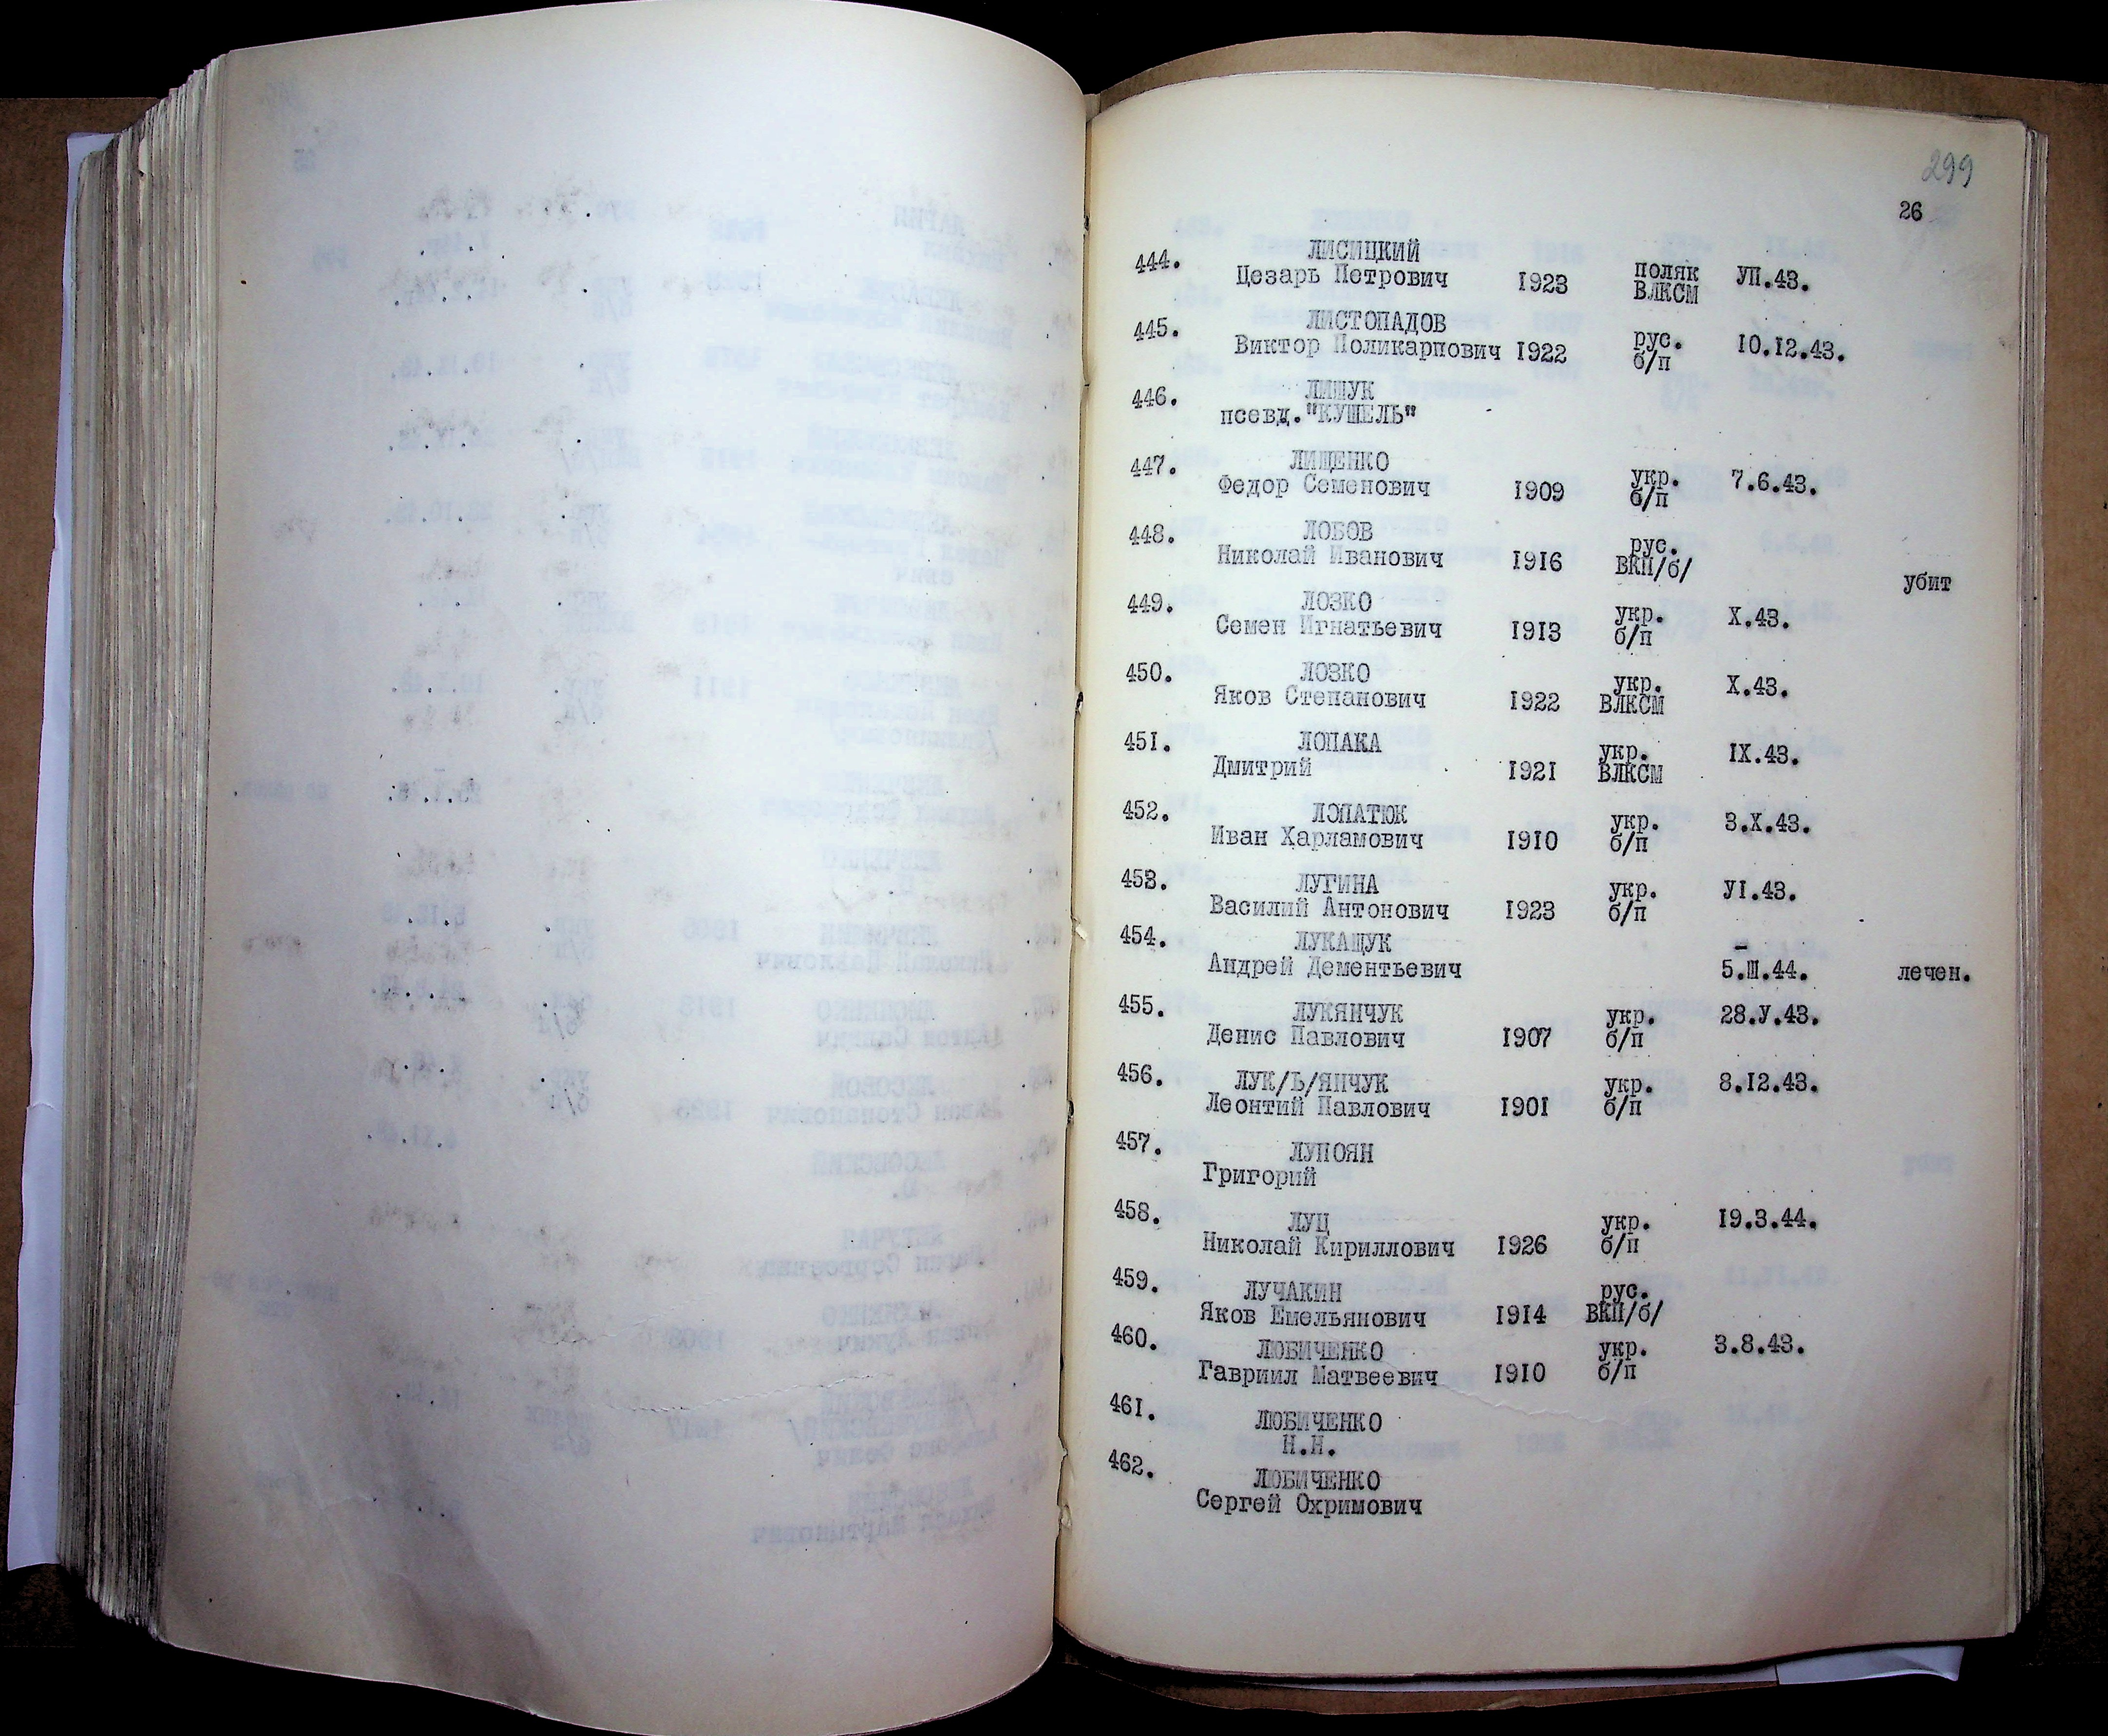 299
26
444. ЛИСИЦКИЙ
Цезарь Петрович 1923 поляк ВЛКСМ УП.43.
445. ЛИСТОПАДОВ
Виктор Поликарпович 1922 рус. б/п 10.12.43.
446. ЛИЩУК
псевд."КУШЕЛЬ"
447. ЛИЩЕНКО
Федор Семенович 1909 укр. б/п 7.6.43.
448. ЛОБОВ
Николай Иванович 1916 рус. ВКП/б/ убит
449. ЛОЗКО
Семен Игнатьевич 1913 укр. б/п Х.43.
450. ЛОЗКО
Яков Степанович 1922 укр. ВЛКСМ Х.43.
451. ЛОПАКА
Дмитрий 1921 укр. ВЛКСМ IX.43.
452. ЛОПАТЮК
Иван Харламович 1910 укр. б/п 3.Х.43.
453. ЛУГИНА
Василий Антонович 1923 укр. б/п УI.43.
454. ЛУКАЩУК
Андрей Дементьевич 5.Ш.44. лечен.
455. ЛУКЯНЧУК
Денис Павлович 1907 укр. б/п 28.У.43.
456. ЛУК/Ь/ЯНЧУК
Леонтий Павлович 1901 укр. б/п 8.12.43.
457. ЛУПОЯН
Григорий
458. ЛУЦ
Николай Кириллович 1926 укр. б/п 19.3.44.
459. ЛУЧАКИН
Яков Емельянович 1914 рус. ВКП/б/
460. ЛЮБИЧЕНКО
Гавриил Матвеевич 1910 укр. б/п 3.8.43.
461. ЛЮБИЧЕНКО
Н.Н.
462. ЛЮБИЧЕНКО
Сергей Охримович